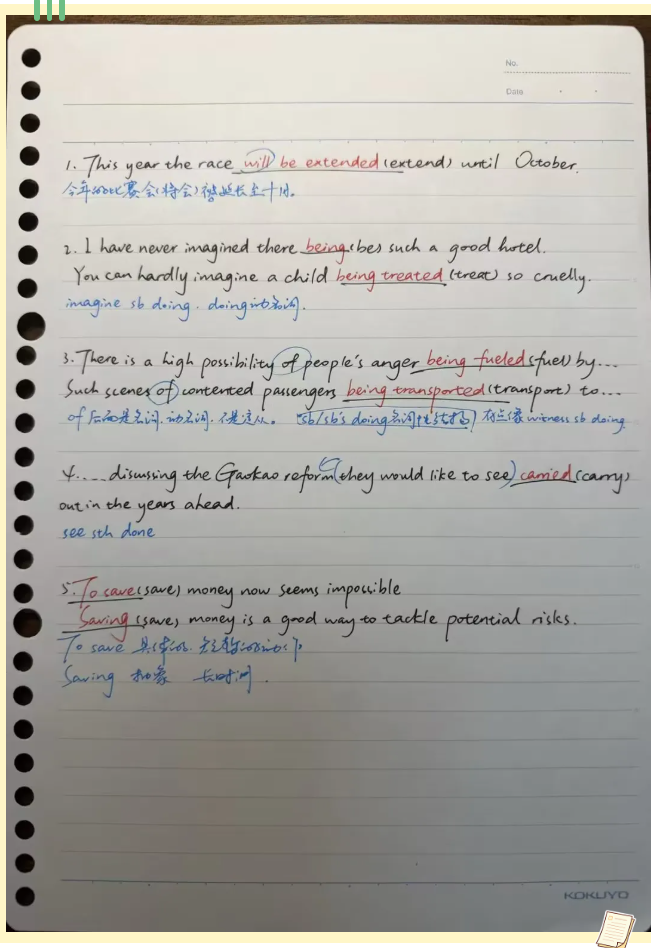 No.
Date
1. This year the race will be extended (extend) until October.
今年的比赛会(将会)被延长至十月.
2. I have never imagined there being (be) such a good hotel.
You can hardly imagine a child being treated (treat) so cruelly.
imagine sb doing. doing动名词.
3. There is a high possibility of people's anger being fueled (fuel) by...
Such scenes of contented passengers being transported (transport) to...
of后面是名词.动名词.不是定从. "sb/sb's doing名词性结构" 有点像 witness sb doing.
4.....discussing the Gaokao reform (they would like to see) carried (carry)
out in the years ahead.
see sth done
5. To save (save) money now seems impossible
Saving (save) money is a good way to tackle potential risks.
To save 具体的.短暂的动作
Saving 抽象 长时间.
KOKUYO